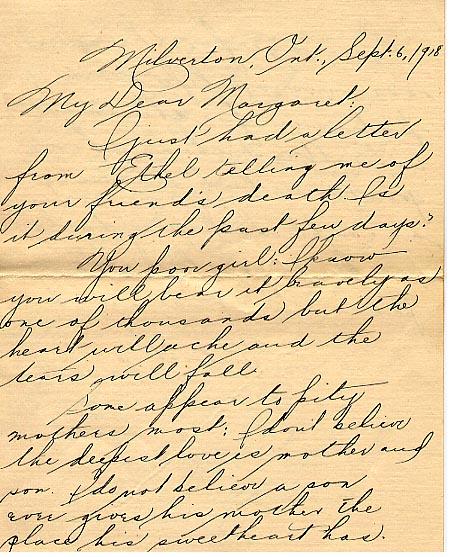 Milverton, Ont., Sept. 6, 1918
My Dear Margaret:
I just had a letter
from Ethel telling me of
your friend's death. Is
it during the past few days?
You poor girl; I know
you will bear it bravely as
one of thousands but the
heart will ache and the
tears will fall.
Some appear to pity
mothers most; I don't believe
the deepest love is mother and
son. I do not believe a son
ever gives his mother the
place his sweetheart has.